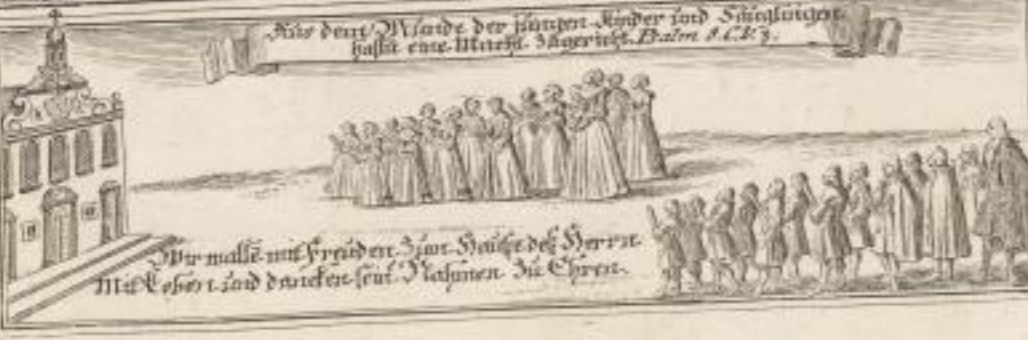 Aus dem Munde der jungen Kinder und Säuglingen
hastu eine Macht Zugericht. Psalm 8. C. V. 3.
Wir wallē mit freuden Zum Hause deß Herrn
Mit Loben und dancken sein Nahmen Zu Ehren.